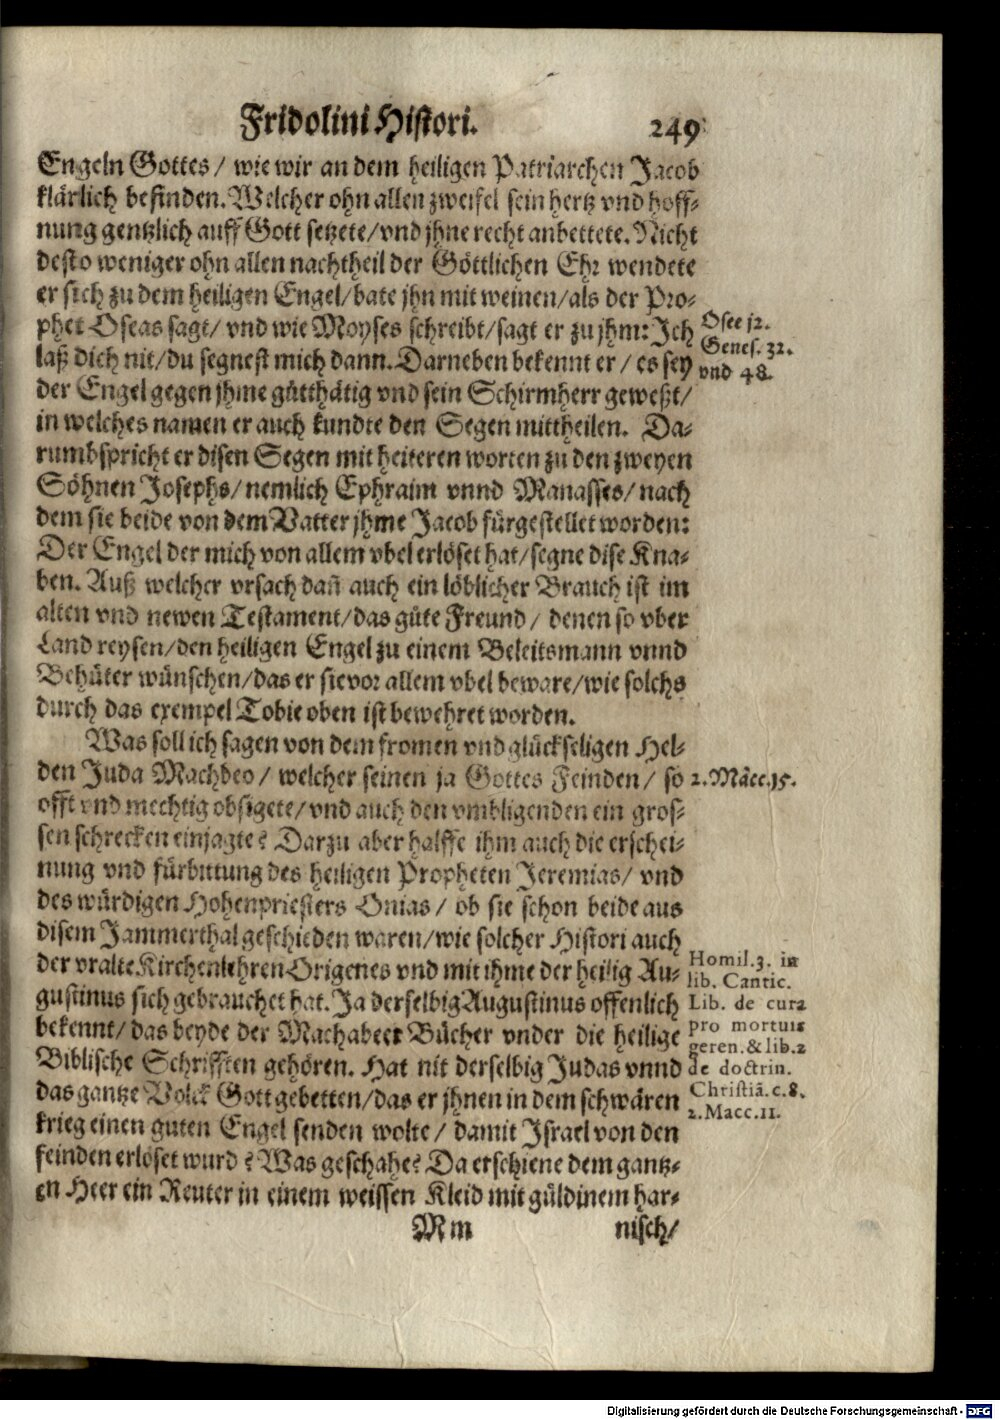 Fridolini Histori. 249
Engeln Gottes / wie wir an dem heiligen Patriarchen Jacob
klärlich befinden. Welcher ohn allen zweifel sein hertz vnd hoff-
nung gentzlich auff Gott setzete / vnd jhne recht anbettete. Nicht
desto weniger ohn allen nachtheil der Göttlichen Ehr wendete
er sich zu dem heiligen Engel / bate jhn mit weinen / als der Pro-
phet Oseas sagt / vnd wie Moyses schreibt / sagt er zu jhm: Ich
Osee 12.
laß dich nit / du segnest mich dann. Darneben bekennt er / es sey
Genes. 32.
vnd 48.
der Engel gegen jhme gütthätig vnd sein Schirmherr geweßt /
in welches namen er auch kundte den Segen mittheilen. Da-
rumb spricht er disen Segen mit heiteren worten zu den zweyen
Söhnen Josephs / nemlich Ephraim vnnd Manasses / nach
dem sie beide von dem Vatter jhme Jacob fürgestellet worden:
Der Engel der mich von allem vbel erlöset hat / segne dise Kna-
ben. Auß welcher vrsach dañ auch ein löblicher Brauch ist im
alten vnd newen Testament / das güte Freund / denen so vber
Land reysen / den heiligen Engel zu einem Beleitsmann vnnd
Behüter wünschen / das er sie vor allem vbel beware / wie solchs
durch das exempel Tobie oben ist bewehret worden.
Was soll ich sagen von dem fromen vnd glückseligen Hel-
den Juda Machbeo / welcher seinen ja Gottes Feinden / so
2. Macc. 15.
offt vnd mechtig obsigete / vnd auch den vmbligenden ein gros-
sen schrecken einjagte? Darzu aber halffe ihm auch die erschei-
nung vnd fürbittung des heiligen Propheten Jeremias / vnd
des würdigen Hohenpriesters Onias / ob sie schon beide aus
disem Jammerthal geschieden waren / wie solcher Histori auch
der vralte Kirchenlehren Origenes vnd mit ihme der heilig Au-
Homil. 3. in
lib. Cantic.
gustinus sich gebrauchet hat. Ja derselbig Augustinus offenlich
Lib. de cura
bekennt / das beyde der Machabeer Bücher vnder die heilige
pro mortuis
geren. & lib. 2
Biblische Schrifften gehören. Hat nit derselbig Judas vnnd
de doctrin.
das gantze Volck Gott gebetten / das er jhnen in dem schwären
Christiã. c. 8.
2. Macc. 11.
krieg einen guten Engel senden wolte / damit Israel von den
feinden erlöset wurd? Was geschahe? Da erschiene dem gantz-
en Heer ein Reuter in einem weissen Kleid mit güldinem har-
Mm nisch /
Digitalisierung gefördert durch die Deutsche Forschungsgemeinschaft - DFG